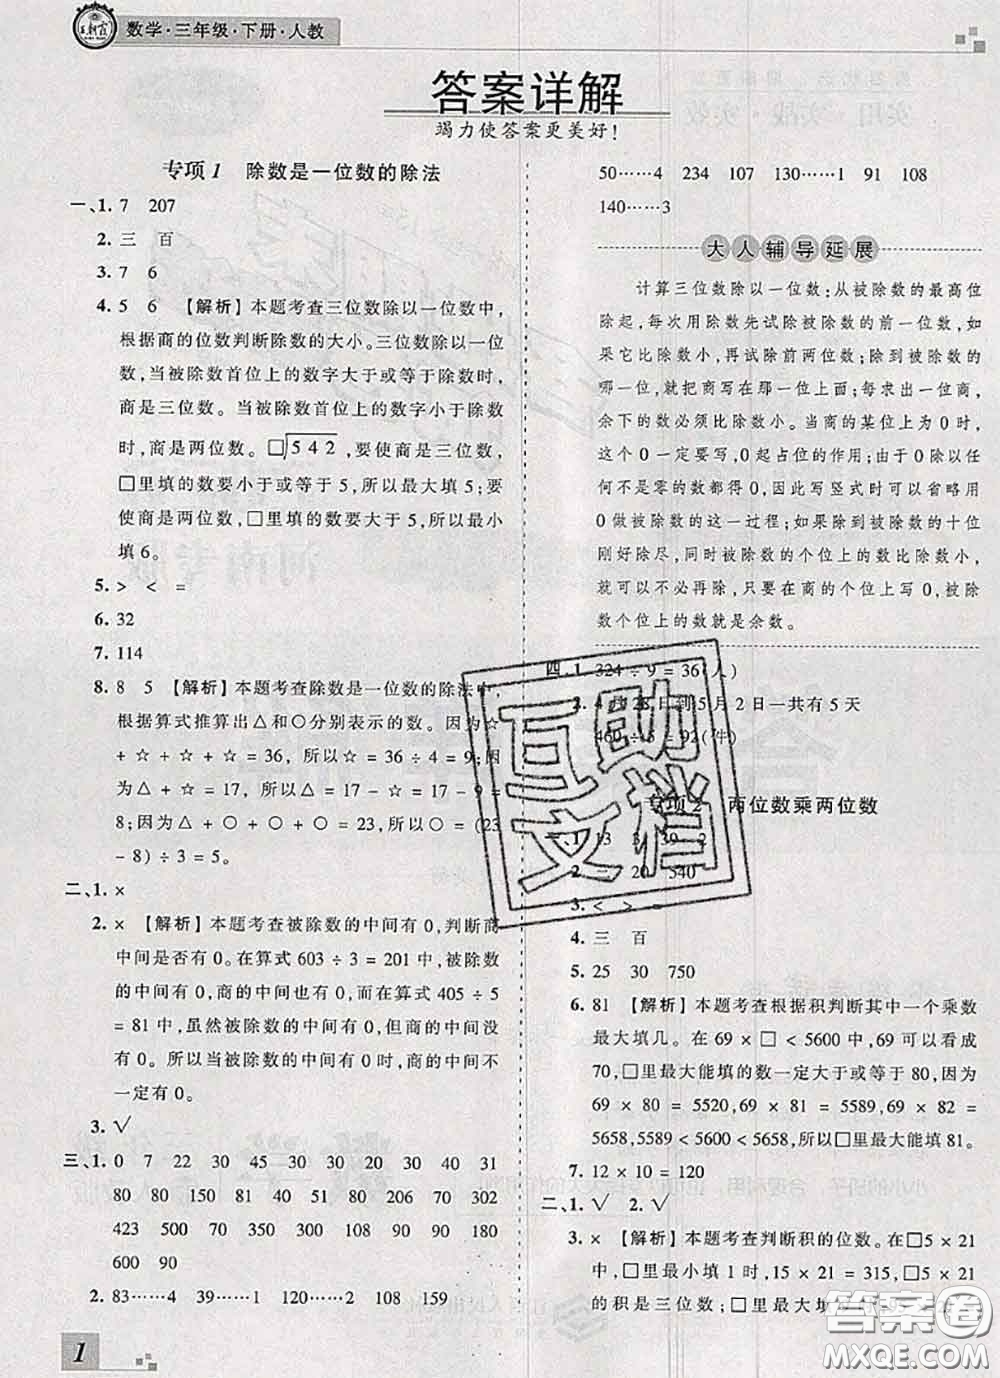 王朝霞
数学·三年级·下册·人教
答案详解
竭力使答案更美好!
专项1 除数是一位数的除法
一、1. 7 207
2. 三 百
3. 7 6
4. 5 6 【解析】本题考查三位数除以一位数中,
根据商的位数判断除数的大小。三位数除以一位
数,当被除数首位上的数字大于或等于除数时,
商是三位数。当被除数首位上的数字小于除数
时,商是两位数。□)542,要使商是三位数,
□里填的数要小于或等于5,所以最大填5;要
使商是两位数,□里填的数要大于5,所以最小
填6。
5. > < =
6. 32
7. 114
8. 8 5 【解析】本题考查除数是一位数的除法中,
根据算式推算出△和○分别表示的数。因为☆
+ ☆ + ☆ + ☆ = 36, 所以☆ = 36 ÷ 4 = 9;因
为△ + ☆ + ☆ + ☆ = 35, 所以△ = 35 - 9 × 3 =
8;因为△ + ○ + ○ + ○ = 23,所以○ = (23
- 8) ÷ 3 = 5。
二、1. ×
2. × 【解析】本题考查被除数的中间有0,判断商
中间是否有0。在算式603 ÷ 3 = 201中,被除数
的中间有0,商的中间也有0;而在算式405 ÷ 5
= 81中,虽然被除数的中间有0,但商的中间没
有0。所以当被除数的中间有0时,商的中间不
一定有0。
3. √
三、1. 0 7 22 30 45 20 40 31
81 80 80 150 50 200 90 52
423 500 70 300 90 90 180 110
600 90
2. 83……4 39……1 120……2 108 159
50……4 234 107 130……1 91 108
140……3
大人辅导延展
计算三位数除以一位数;从被除数的最高位
除起,每次用除数先试除被除数的前一位数,如
果它比除数小,再试除前两位数;除到被除数的
哪一位,就把商写在那一位上面;每求出一位商,
余下的数必须比除数小。当商的某位上为0时,
这个0一定要写,0起占位的作用;由于0除以任
何不是零的数都得0,因此写竖式时可以省略用
0做被除数的这一过程;如果除到被除数的十位
刚好除尽,同时被除数的个位上的数比除数小,
就可以不必再除,只要在商的个位上写0,被除
数个位上的数就是余数。
四、1. 324 ÷ 9 = 36(人)
2. 4月28日到5月2日一共有5天
460 ÷ 5 = 92(件)
专项2 两位数乘两位数
一、1. 13 3 39 2
2. 20 540
3. < > =
4. 三 百
5. 25 30 750
6. 81 【解析】本题考查根据积判断其中一个乘数
最大填几。在69 × □ < 5600中,69可以看成
70,□里最大能填的数一定大于或等于80,
69 × 80 = 5520,69 × 81 = 5589,69 × 82 =
5658,5589 < 5600 < 5658,所以□里最大能填81。
7. 12 × 10 = 120
二、1. √ 2. √
3. × 【解析】本题考查判断积的位数。在□5 × 21
中,□里最小填1时,15 × 21 = 315,□5 × 21
的积是三位数;□里最大填
互助
文档
答案圈
MXQE.COM
1